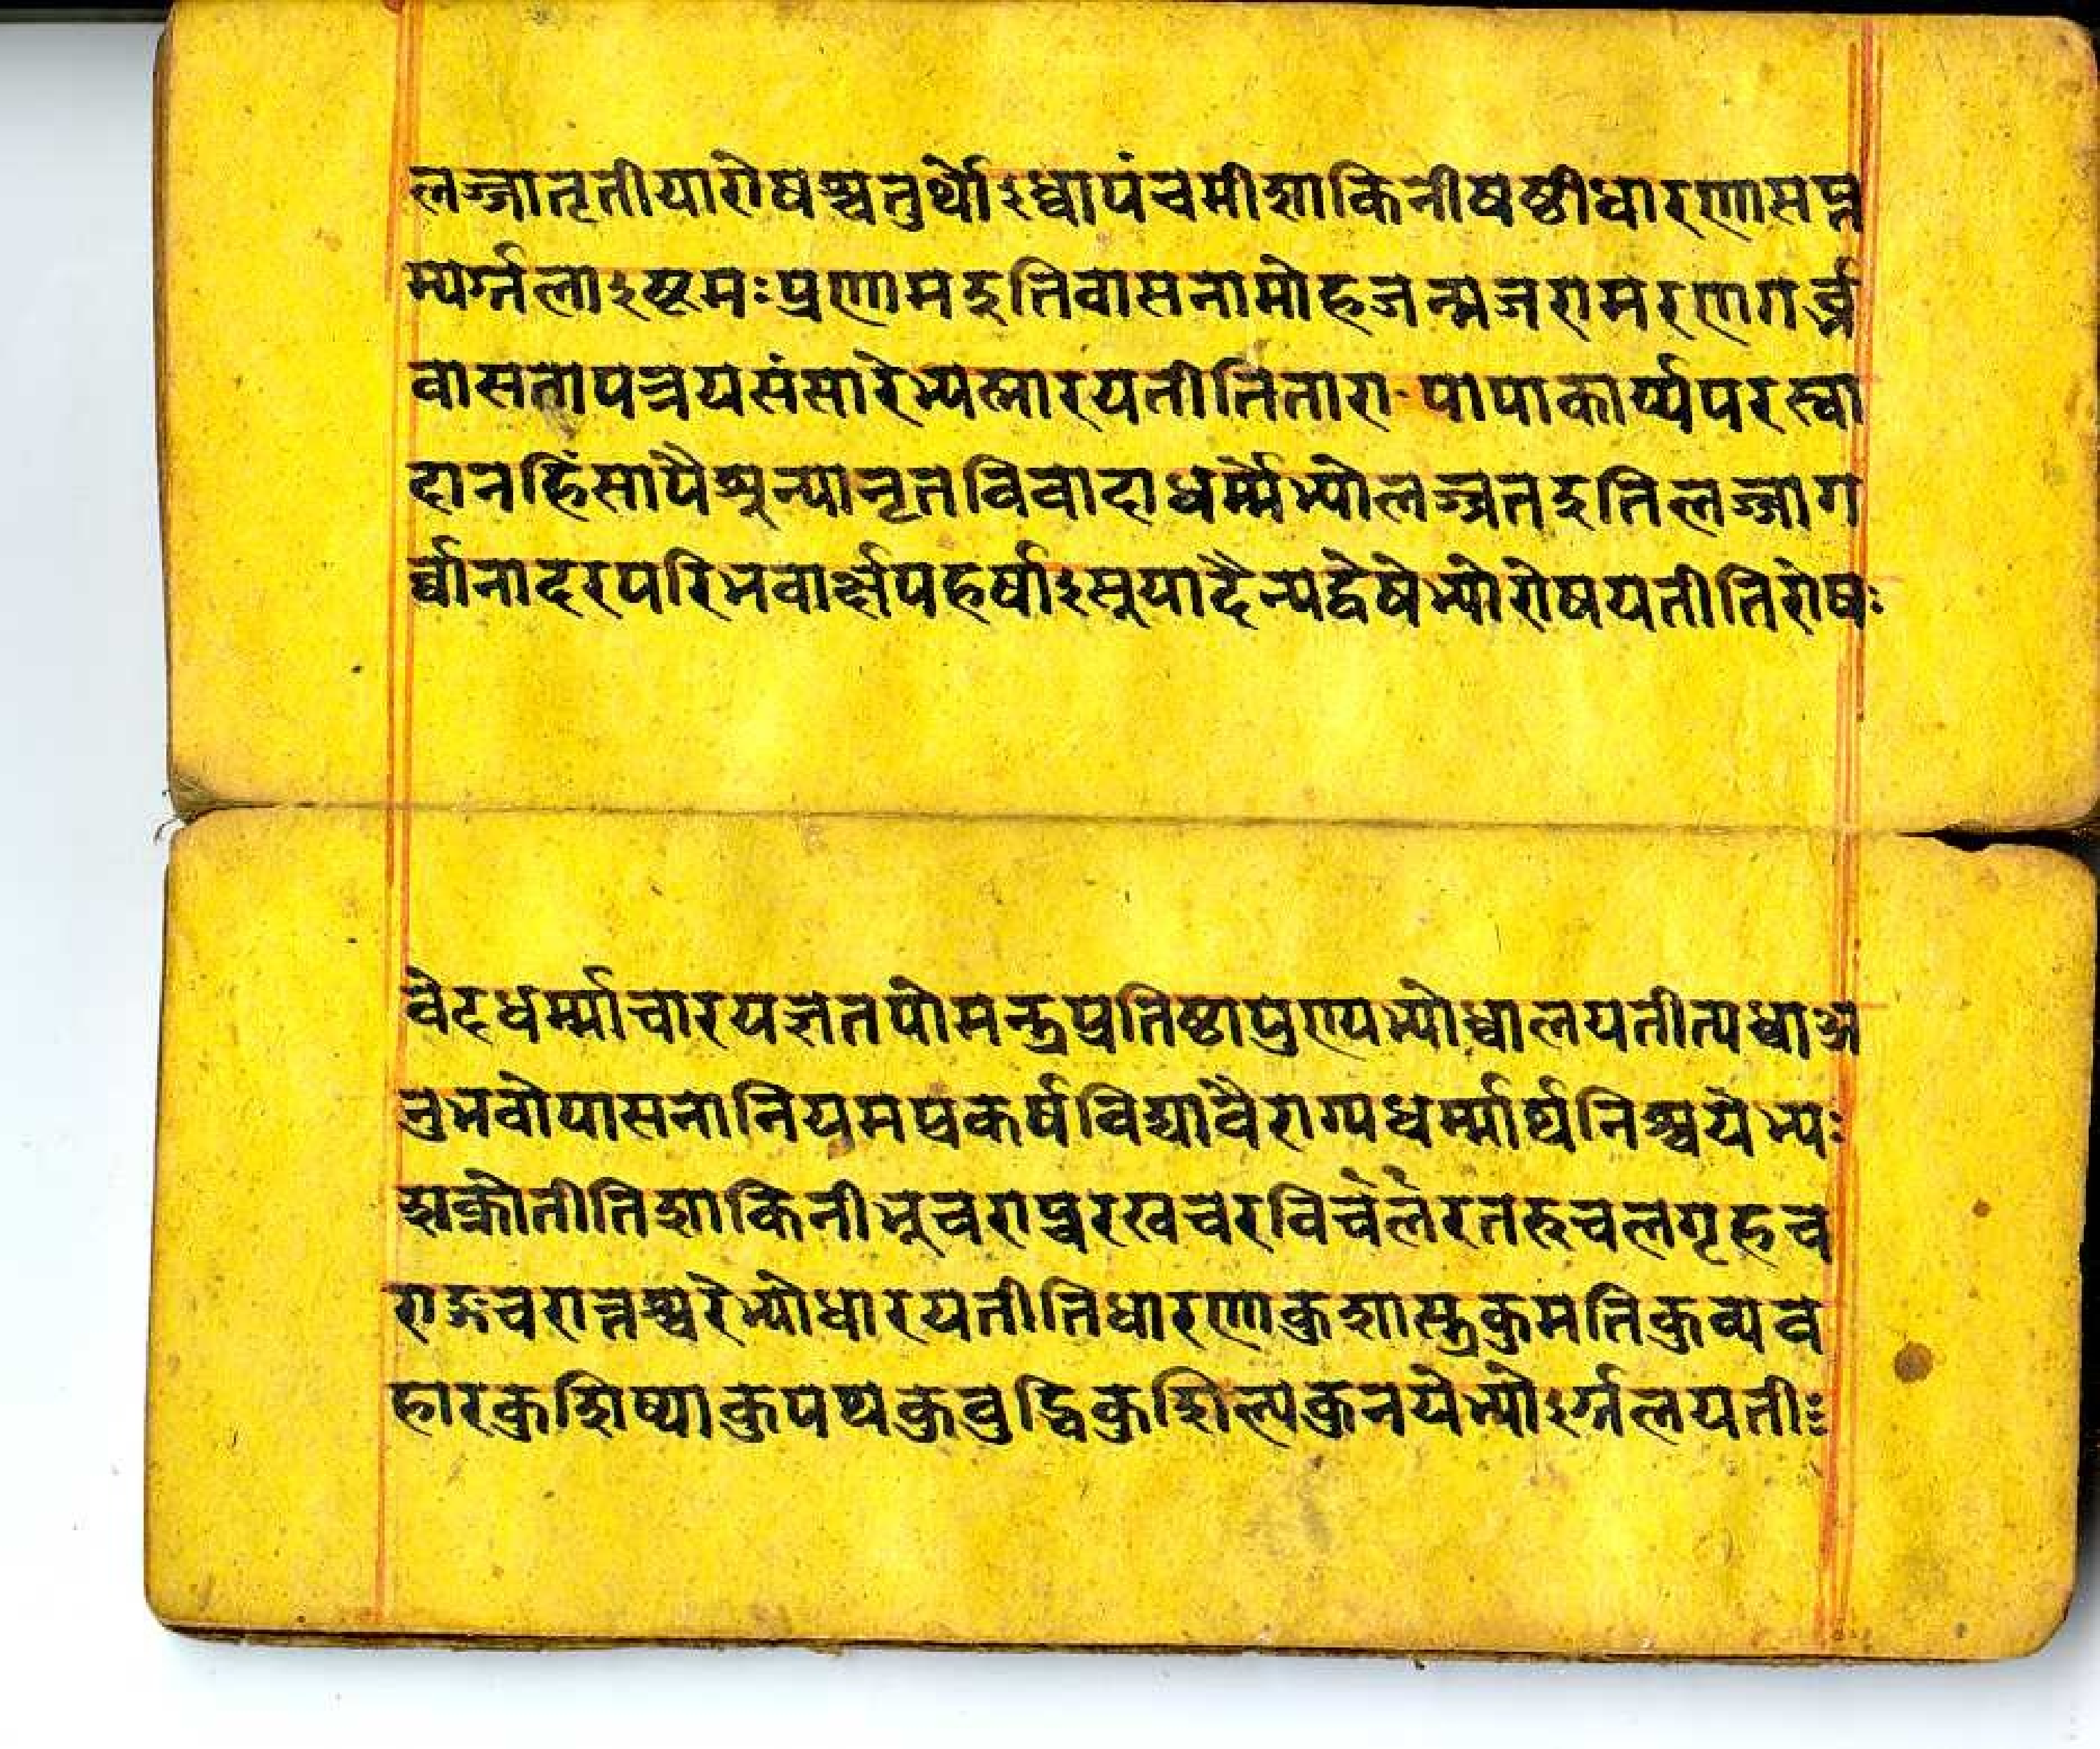 लज्जातृतीयारोषश्चतुर्थोऽध्वापंचमीशाकिनीषष्ठीधारणासप्त
म्यर्ग्गलाऽष्टमःप्रणामइतिवासनामोहजन्मजरामरणगर्ब्भ
वासतापत्रयसंसारेभ्यस्तारयतीतितारा-पापाकार्य्यपरस्वा
दानहिंसापैशून्यानृतविवादाधर्म्मेभ्योलज्जतइतिलज्जाग
र्व्वानादरपरिभवाक्षेपहर्षाऽसूयादैन्यद्वेषेभ्योरोषयतीतिरोषः
वेदधर्म्माचारयज्ञतपोमन्त्रप्रतिष्ठापुण्यभ्योध्वालयतीत्यध्वाअ
नुभवोपासनानियमप्रकर्षविद्यावैराग्यधर्म्मार्थनिश्चयेभ्यः
शक्नोतीतिशाकिनीभूचराप्चरखचरविचेलेरतरुचलगृहच
राङ्गचरान्नश्चरेभ्योधारयतीतिधारणाकुशास्त्रकुमतिकुव्यव
हारकुशिष्याकुपथकुबुद्धिकुशिल्पकुनयेभ्योऽर्ग्गलयतीः